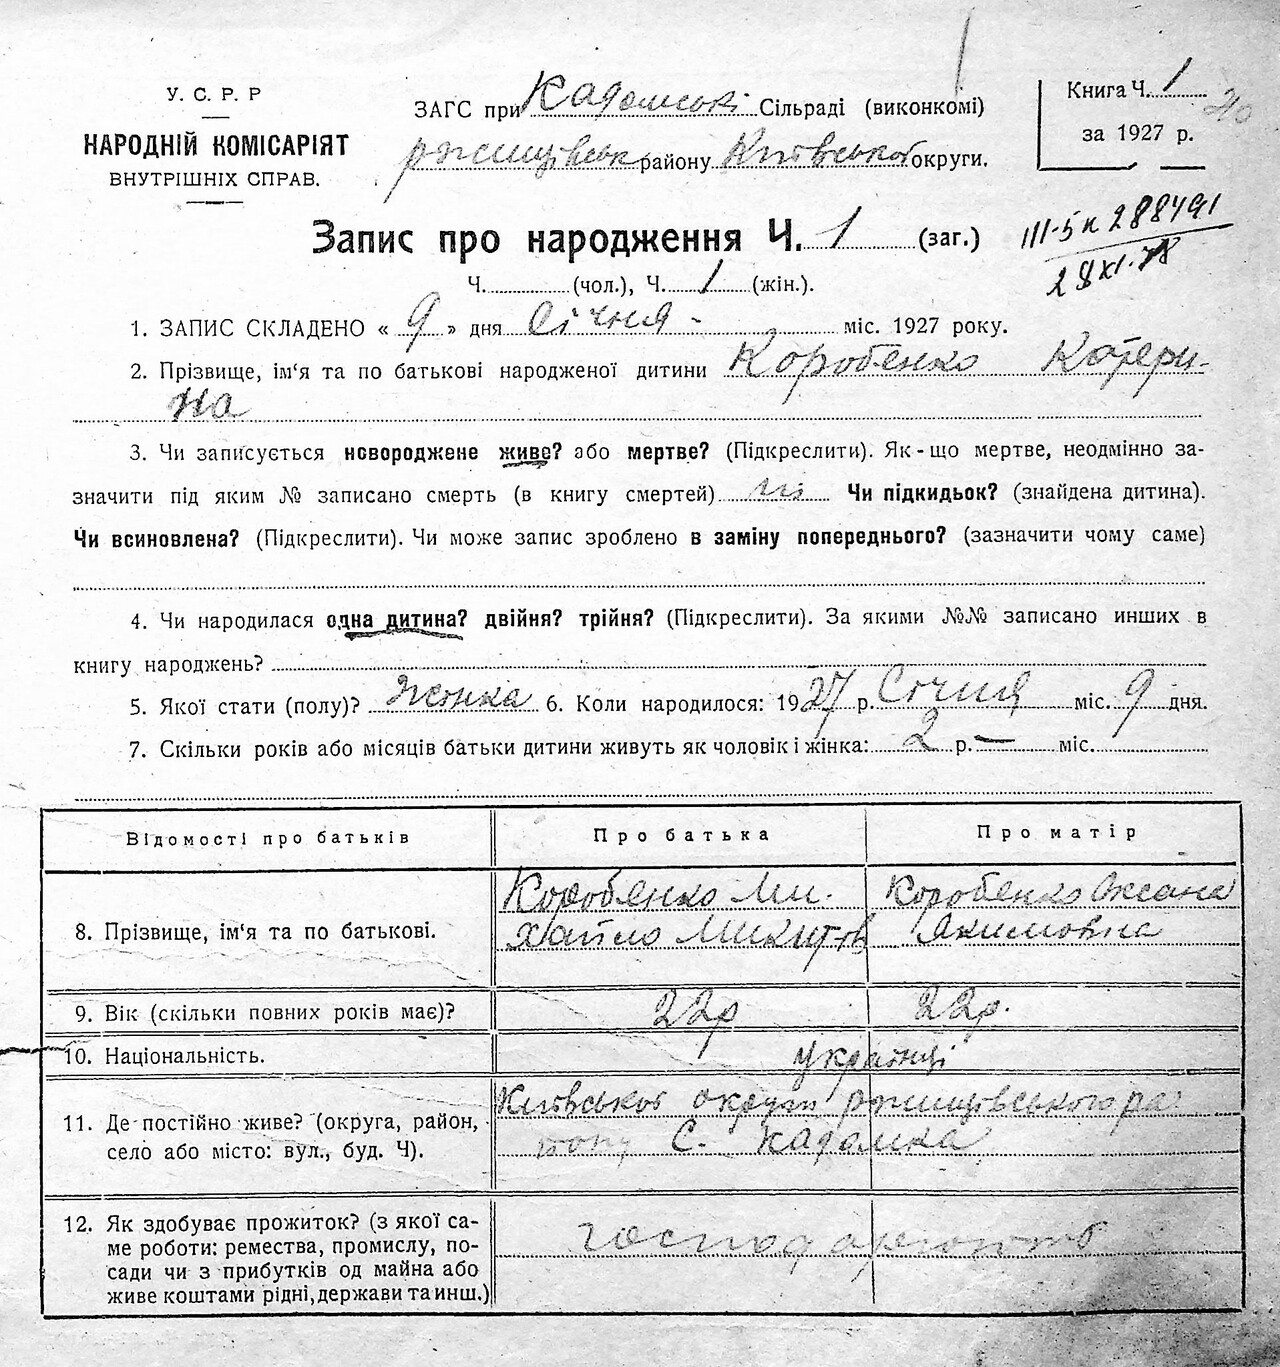 У. С. Р. Р
НАРОДНІЙ КОМІСАРІЯТ
ВНУТРІШНІХ СПРАВ.
ЗАГС при Кадомські Сільраді (виконкомі)
ржищівськ району Київської округи.
Книга Ч. 1
за 1927 р.
Запис про народження Ч. 1 (заг.)
III-5к 288491
28 XI. 78
Ч. (чол.), Ч. 1 (жін.).
1. ЗАПИС СКЛАДЕНО « 9 » дня Січня - міс. 1927 року.
2. Прізвище, ім‘я та по батькові народженої дитини Коробенко Катери-
на
3. Чи записується новороджене живе? або мертве? (Підкреслити). Як-що мертве, неодмінно за-
значити під яким № записано смерть (в книгу смертей) ні Чи підкидьок? (знайдена дитина).
Чи всиновлена? (Підкреслити). Чи може запис зроблено в заміну попереднього? (зазначити чому саме)
4. Чи народилася одна дитина? двійня? трійня? (Підкреслити). За якими №№ записано инших в
книгу народжень?
5. Якої стати (полу)? Жінка 6. Коли народилося: 1927 р. Січня міс. 9 дня.
7. Скільки років або місяців батьки дитини живуть як чоловік і жінка: 2 р. — міс.
Відомості про батьків Про батька Про матір
8. Прізвище, ім‘я та по батькові.
Коробенко Ми-
хайло Микитов
Коробенко Оксана
Якимовна
9. Вік (скільки повних років має)? 22р 22р.
10. Національність. українці
11. Де постійно живе? (округа, район,
село або місто: вул., буд. Ч).
Київської округи ржищівського ра
йону С. Кадомка
12. Як здобуває прожиток? (з якої са-
ме роботи: ремества, промислу, по-
сади чи з прибутків од майна або
живе коштами рідні, держави та инш.)